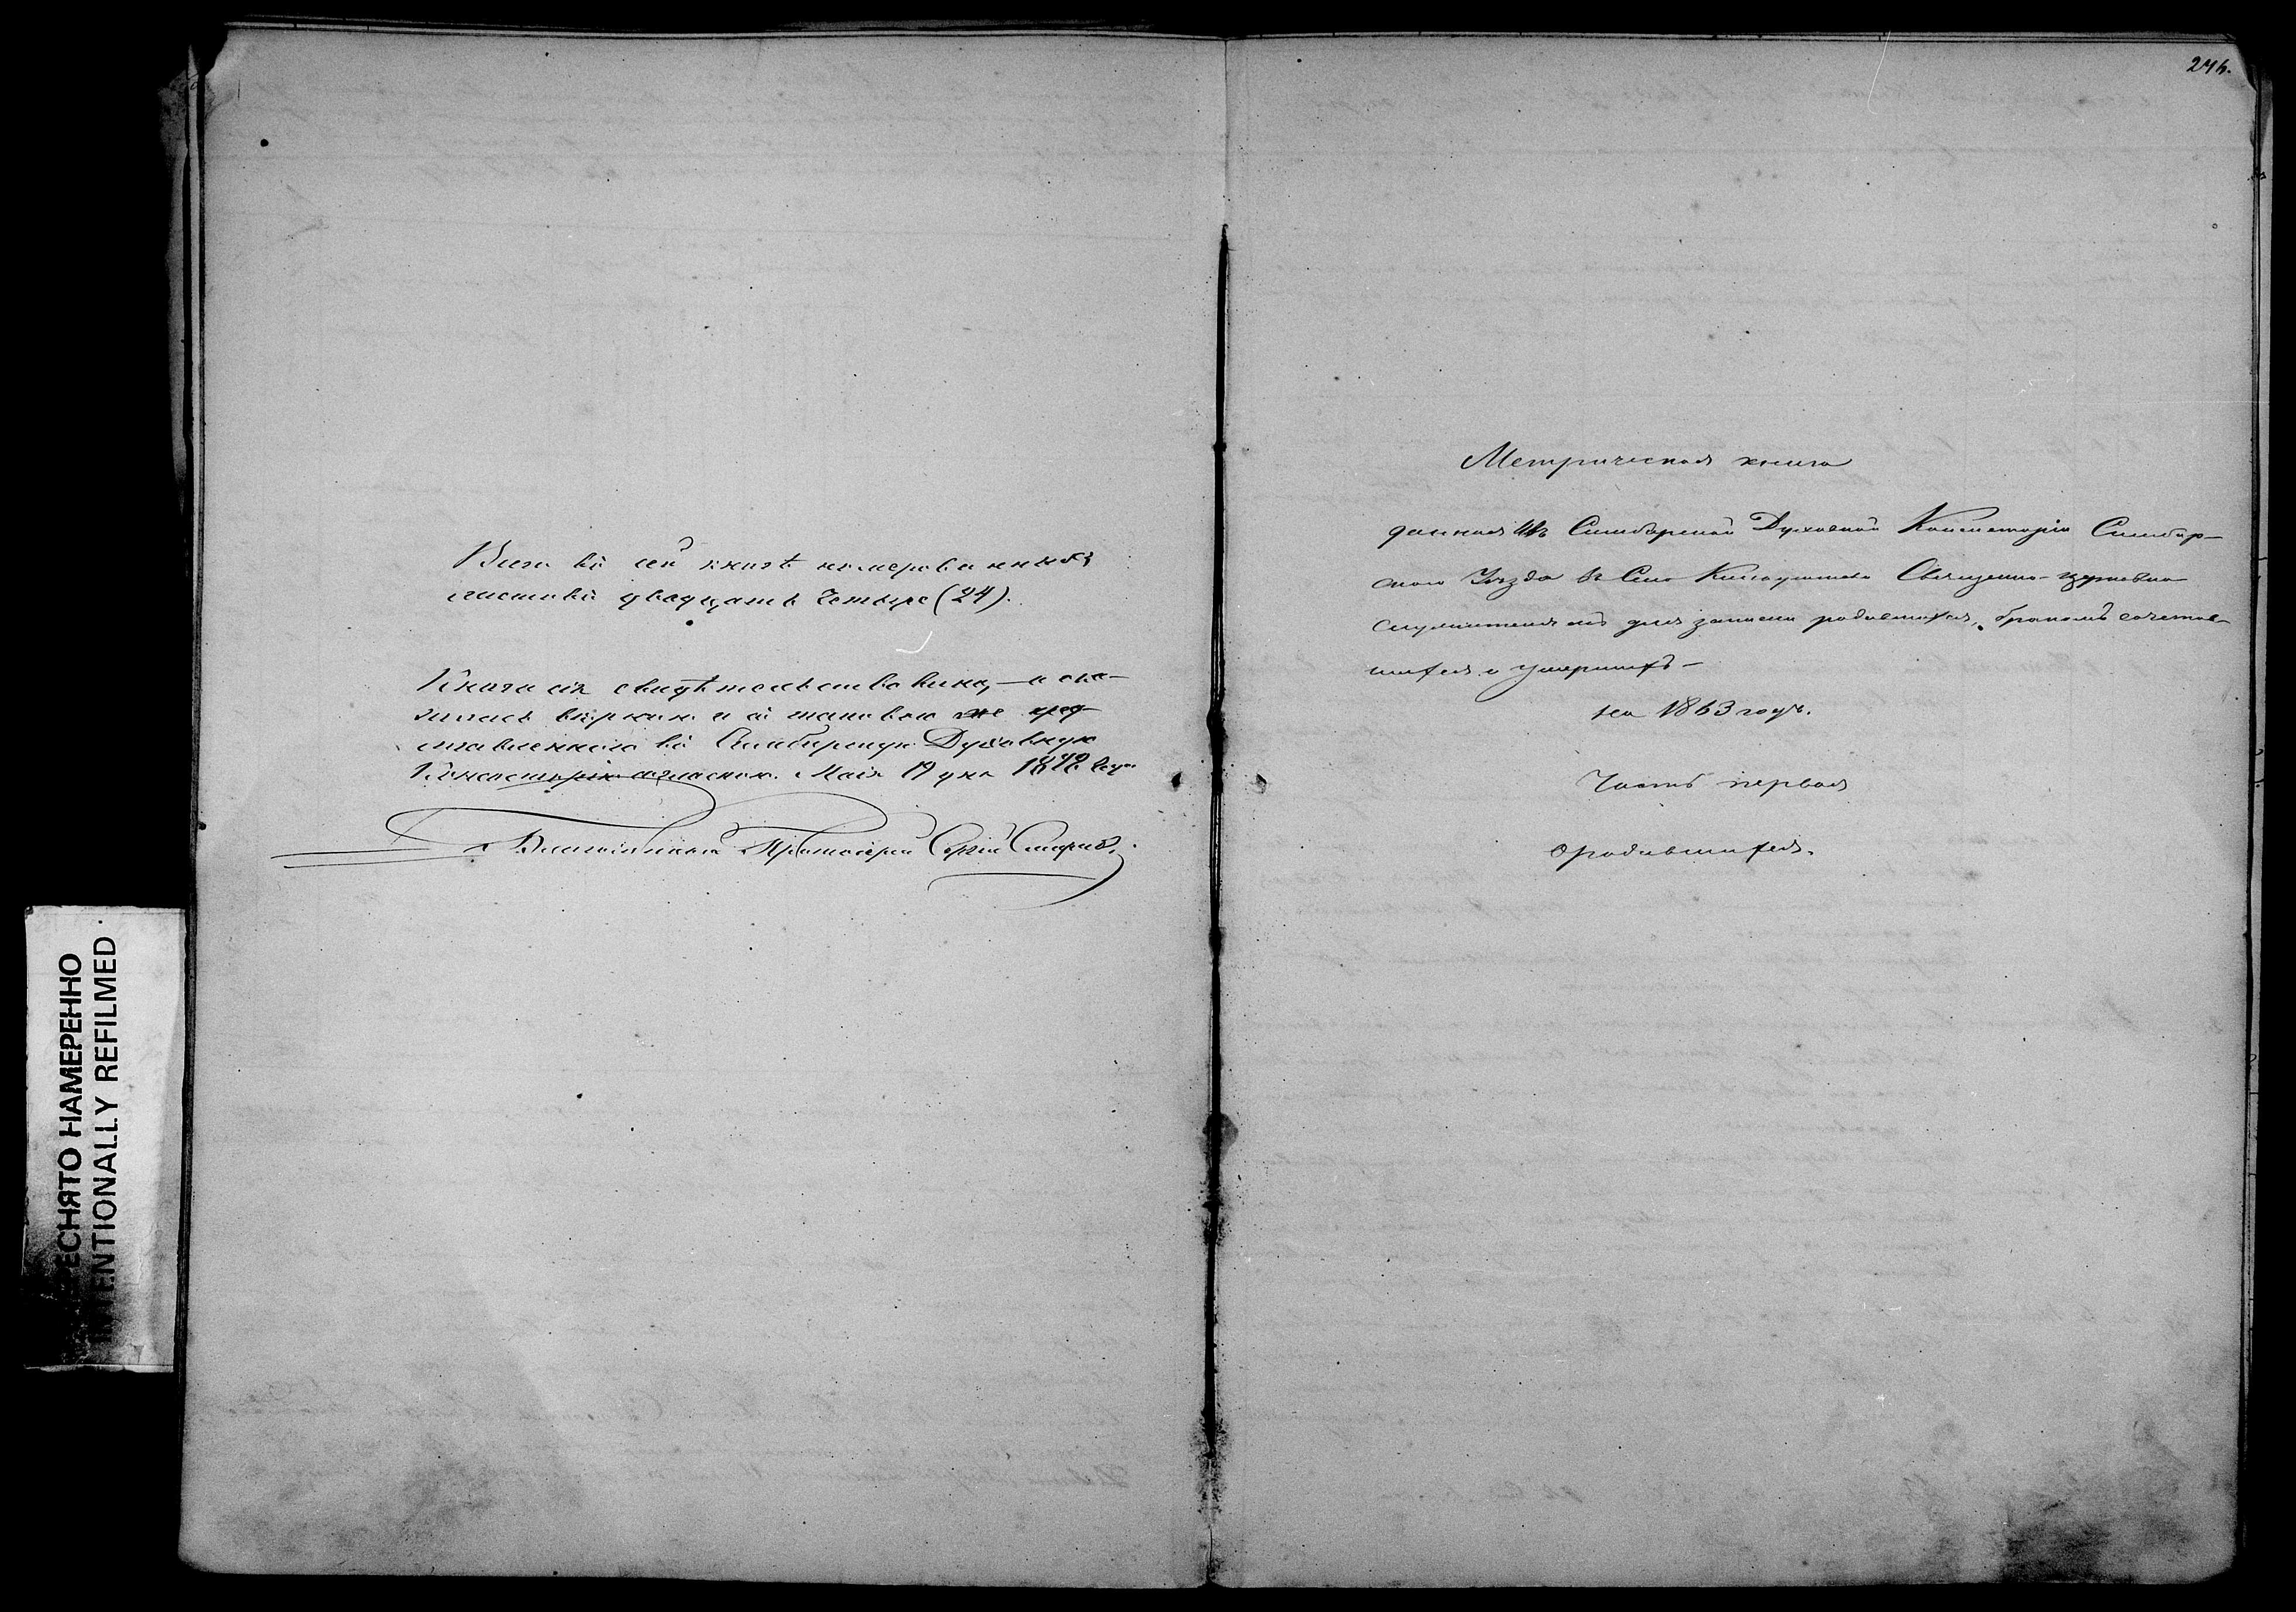 Всего въ сей книгѣ номерованныхъ
листовъ двадцать четыре (24).
Книга сія свидѣтельствована, — и ока-
залась вѣрною и съ таковою же пред-
ставленною въ Симбирскую Духовную
Консисторію согласною. Маія 19 дня года
Благочинный Протоіерей Сергій
274.
Метрическая книга
данная изъ Симбирской Духовной Консисторіи Симбир-
скаго Уѣзда въ Село Священно-церковно-
служителямъ для записки родившихся, бракомъ сочетав-
шихся и умершихъ —
на 1863 годъ.
Часть первая
О родившихся.
ЕСНЯТО НАМЕРЕННО
INTENTIONALLY REFILMED